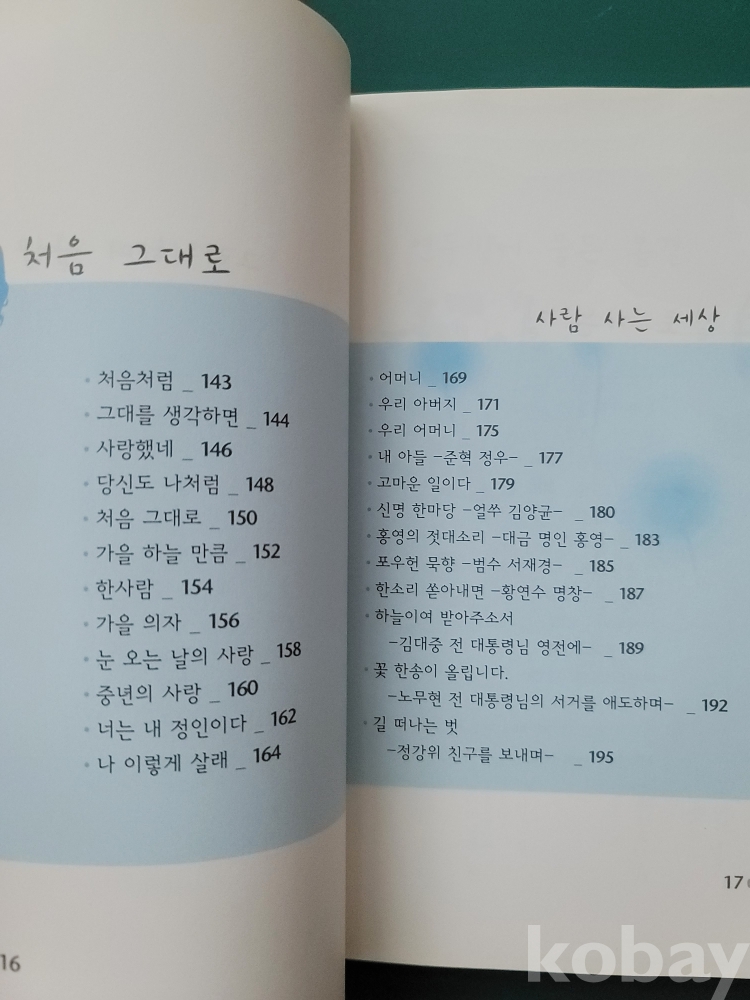 처음 그대로
• 처음처럼 _ 143
• 그대를 생각하면 _ 144
• 사랑했네 _ 146
• 당신도 나처럼 _ 148
• 처음 그대로 _ 150
• 가을 하늘 만큼 _ 152
• 한사람 _ 154
• 가을 의자 _ 156
• 눈 오는 날의 사랑 _ 158
• 중년의 사랑 _ 160
• 너는 내 정인이다 _ 162
• 나 이렇게 살래 _ 164
16
사람 사는 세상
• 어머니 _ 169
• 우리 아버지 _ 171
• 우리 어머니 _ 175
• 내 아들 -준혁 정우- _ 177
• 고마운 일이다 _ 179
• 신명 한마당 -얼쑤 김양균- _ 180
• 홍영의 젓대소리 -대금 명인 홍영- _ 183
• 포우헌 묵향 -범수 서재경- _ 185
• 한소리 쏟아내면 -황연수 명창- _ 187
• 하늘이여 받아주소서
-김대중 전 대통령님 영전에- _ 189
• 꽃 한송이 올립니다.
-노무현 전 대통령님의 서거를 애도하며- _ 192
• 길 떠나는 벗
-정강위 친구를 보내며- _ 195
17
kobay